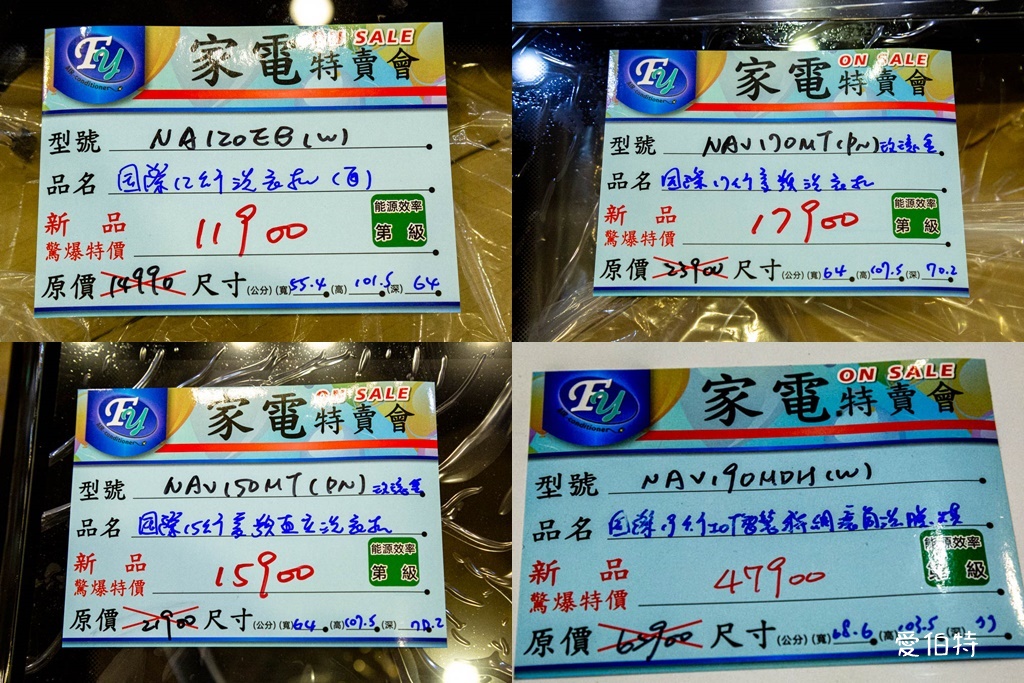 FY
Air Conditioner
家電特賣會
ON SALE
型號 NA120EB(W)
品名 国際12公斤洗衣機(白)
新品
驚爆特價 11900
能源效率
第 級
原價 14990 尺寸(公分)(寬)55.4(高)101.5(深)64
FY
Air Conditioner
家電特賣會
ON SALE
型號 NAV170MT(PN)玫瑰金
品名 国際17公斤變頻洗衣機
新品
驚爆特價 17900
能源效率
第 級
原價 23900 尺寸(公分)(寬)64(高)107.5(深)70.2
FY
Air Conditioner
家電特賣會
ON SALE
型號 NAV150MT(PN)玫瑰金
品名 国際15公斤變頻直立洗衣機
新品
驚爆特價 15900
能源效率
第 級
原價 21900 尺寸(公分)(寬)64(高)107.5(深)70.2
FY
Air Conditioner
家電特賣會
ON SALE
型號 NAV190MDH(W)
品名 国際19公斤
新品
驚爆特價 47900
能源效率
第 級
原價 65900 尺寸(公分)(寬)68.6(高)103.5(深)
愛伯特